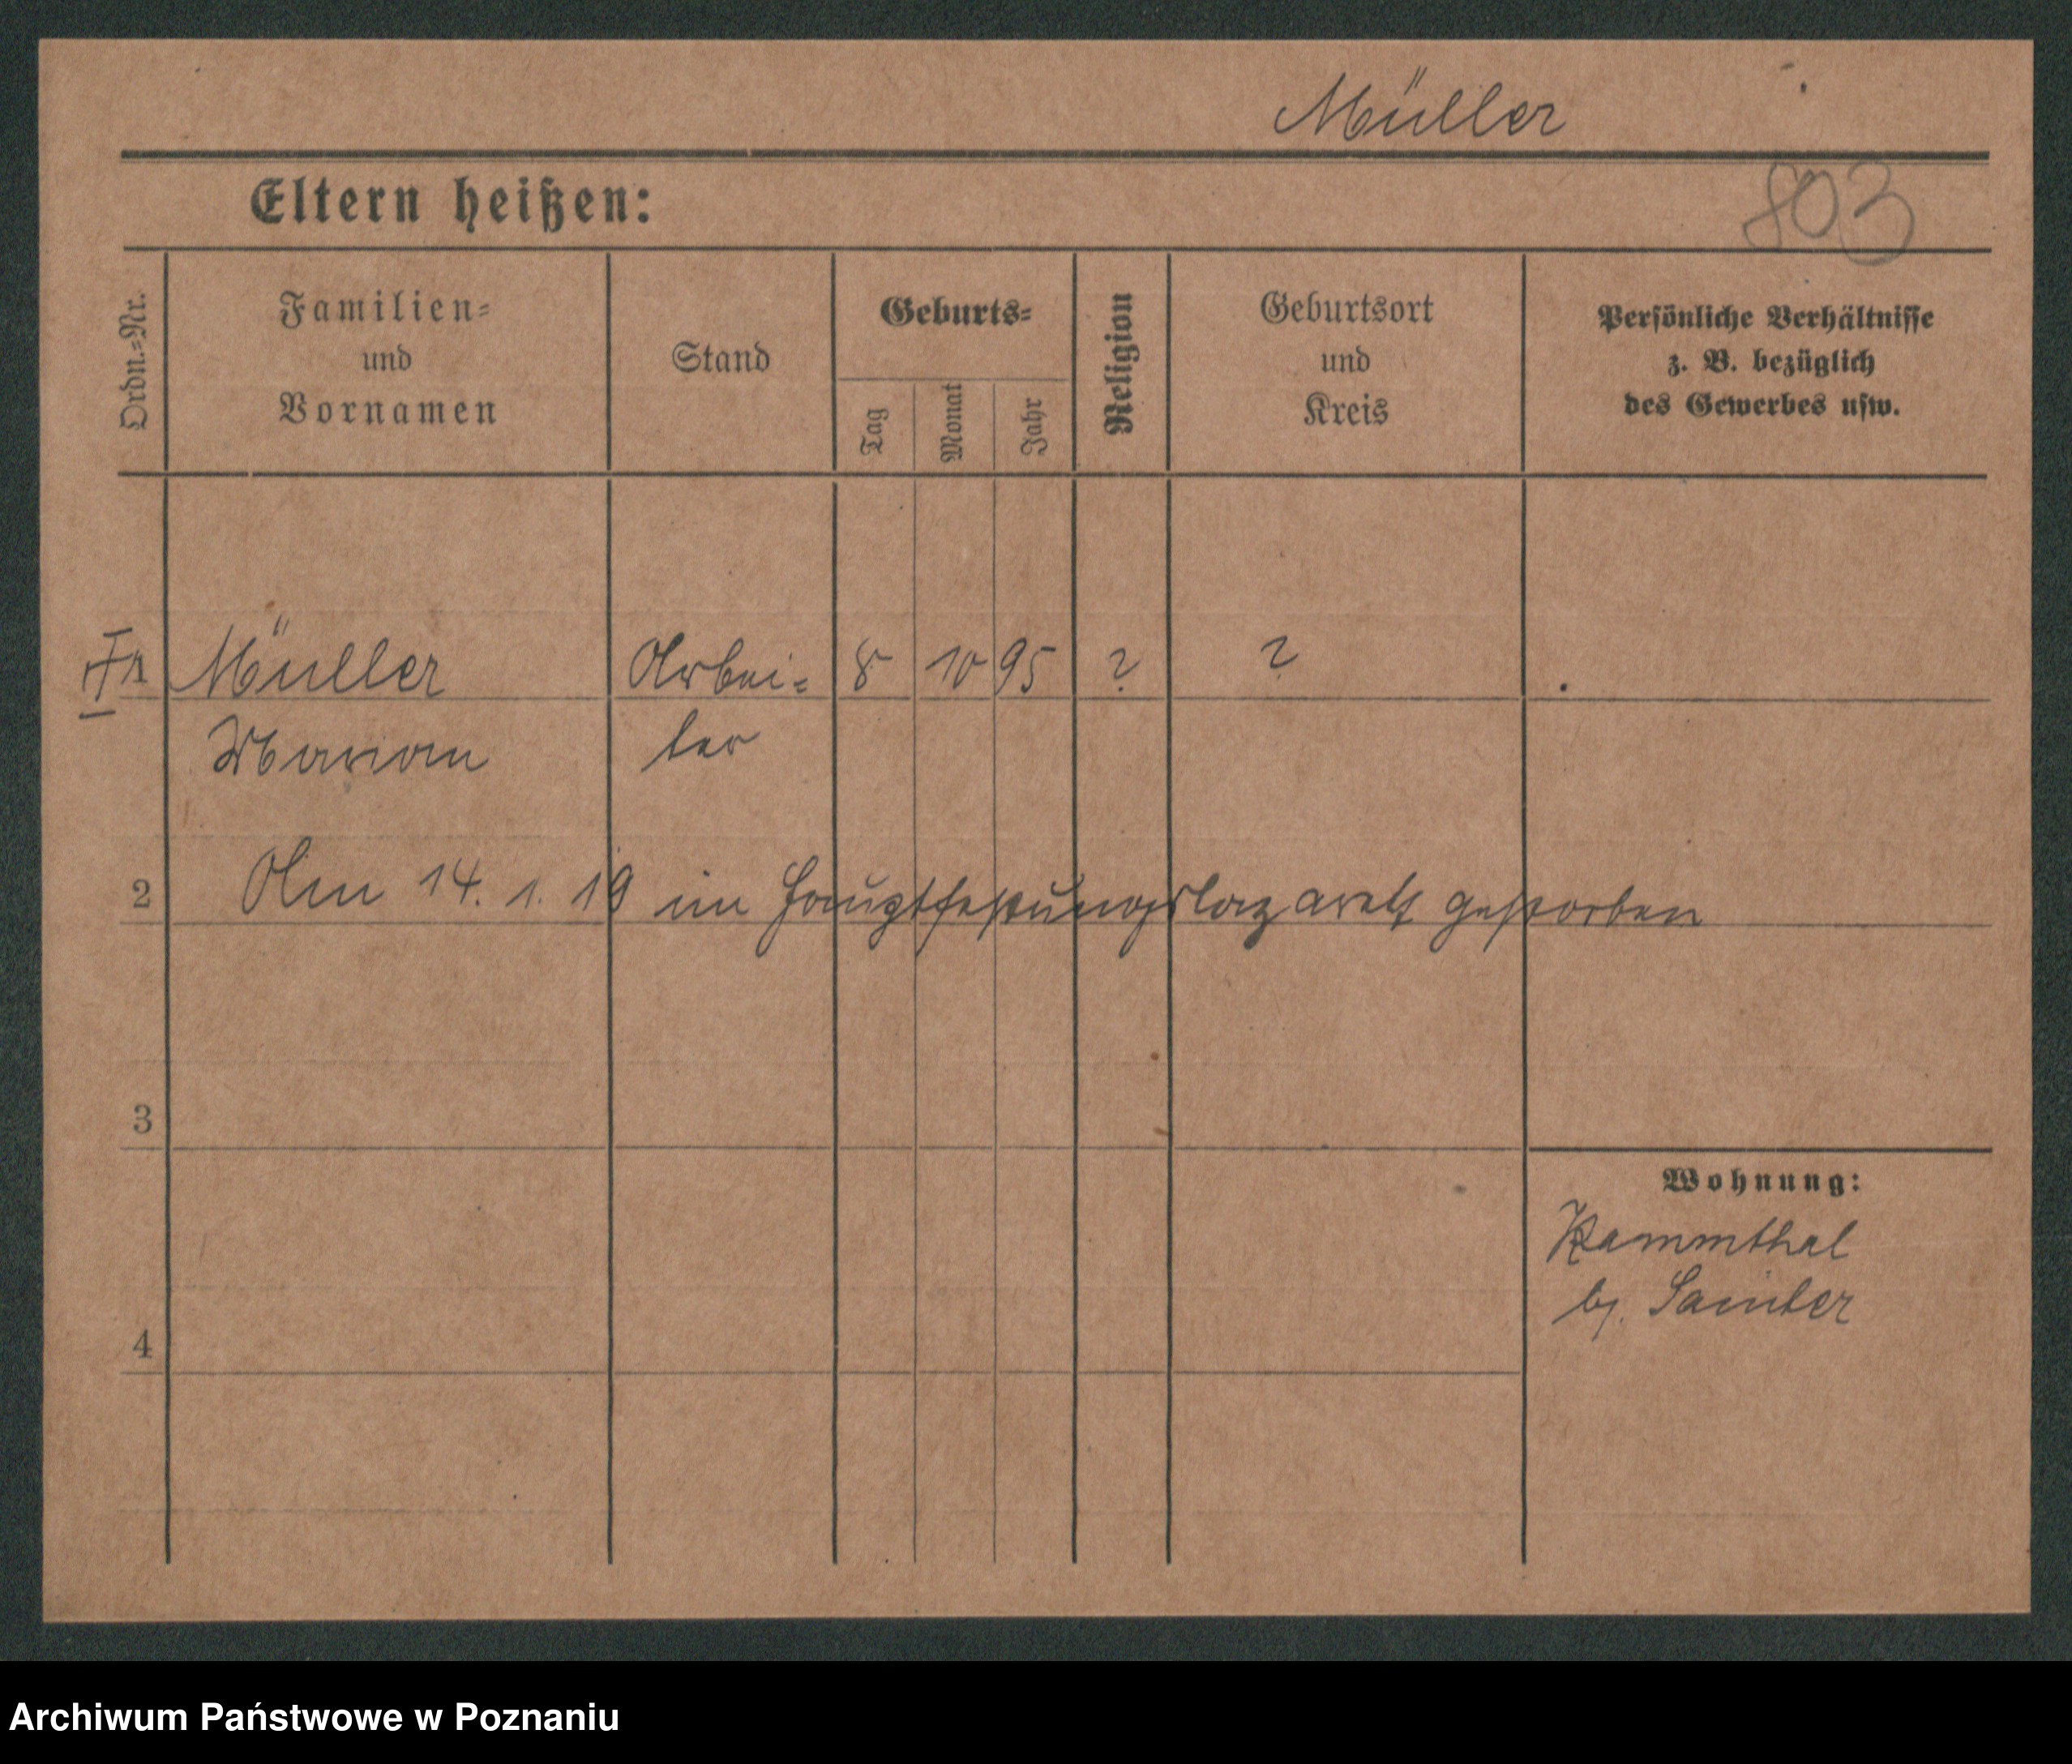 Müller
Eltern heißen:
803
Ordn.-Nr.
Familien-
und
Vornamen
Stand
Geburts-
Tag
Monat
Jahr
Religion
Geburtsort
und
Kreis
Persönliche Verhältnisse
z. B. bezüglich
des Gewerbes usw.
1 Müller Arbei- 8 10 95 ? ?
Marian ter
2 Am 14. 1. 19 im Hauptfestungslazarett gestorben
3
Wohnung:
Kammthal
bj. Samter
4
Archiwum Państwowe w Poznaniu